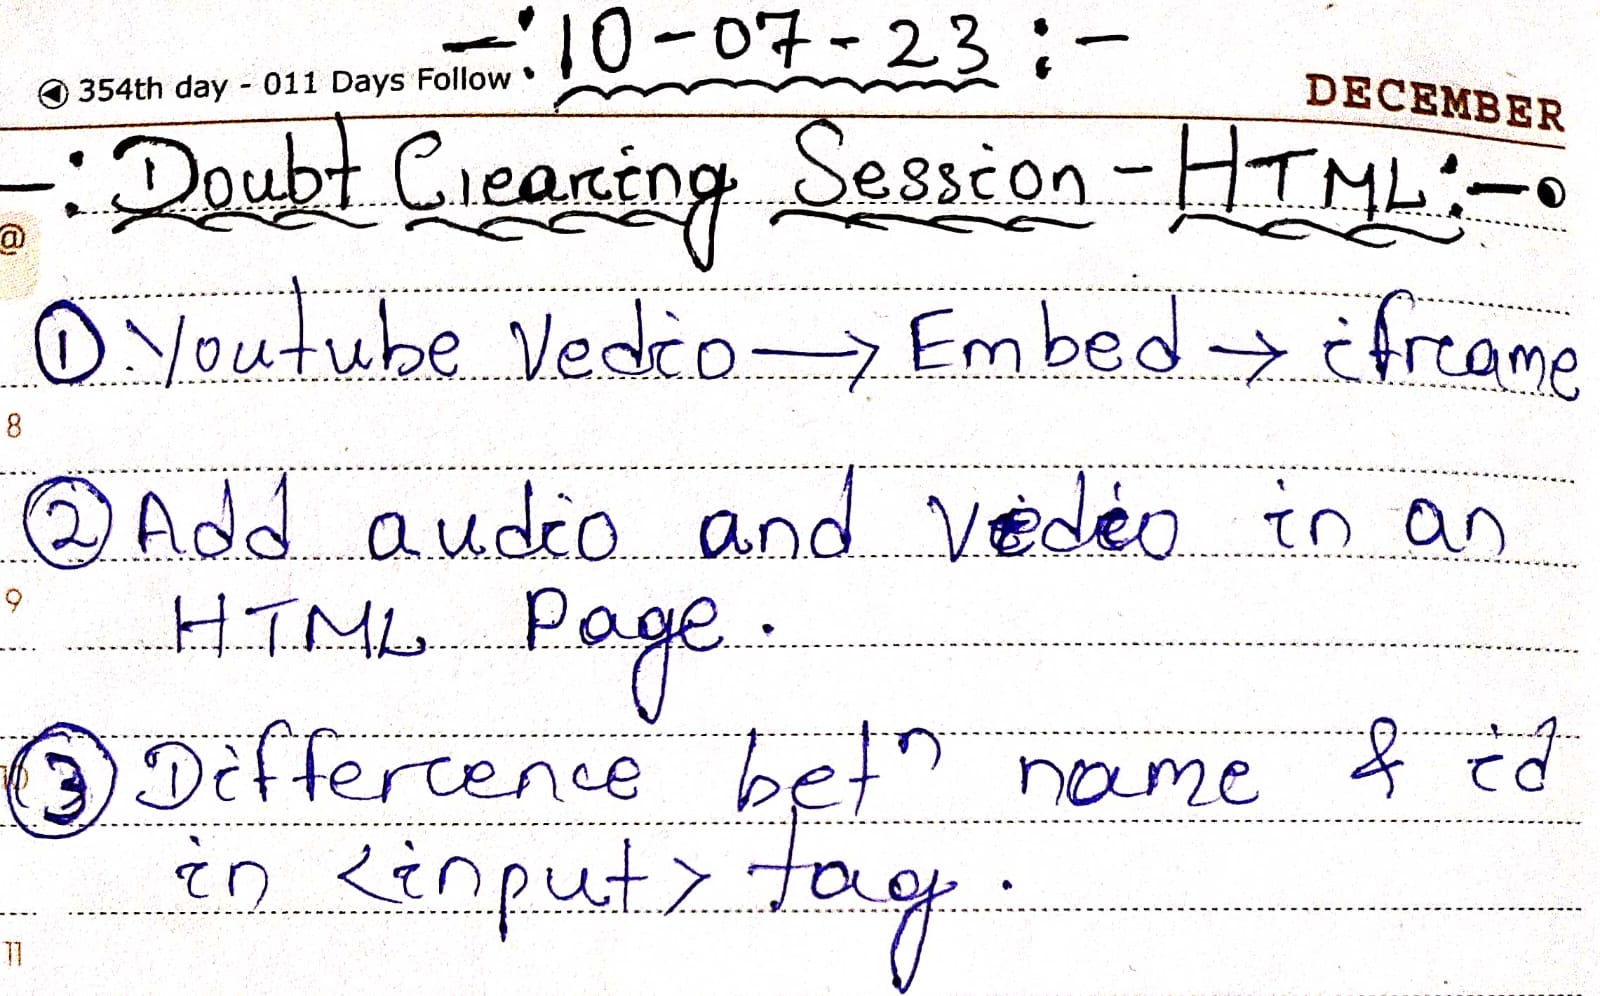 -: 10-07-23 :-
354th day - 011 Days Follow
DECEMBER
-: Doubt Clearing Session - HTML :-
@
① Youtube Vedio → Embed → iframe
8
② Add audio and Vedio in an
9
HTML Page.
10
③ Difference betⁿ name & id
in <input> tag.
11